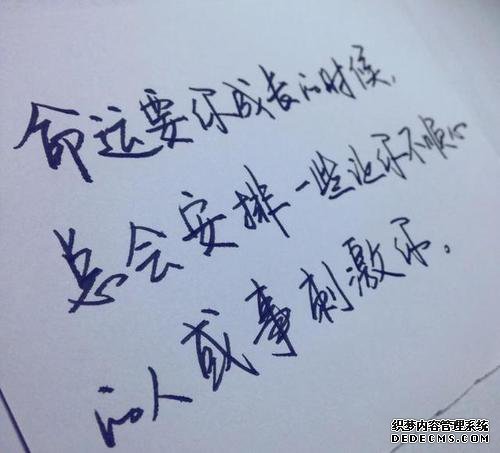 命运要你成长的时候，
总会安排一些让你不顺心
的人或事刺激你。
织梦内容管理系统
DEDECMS.COM